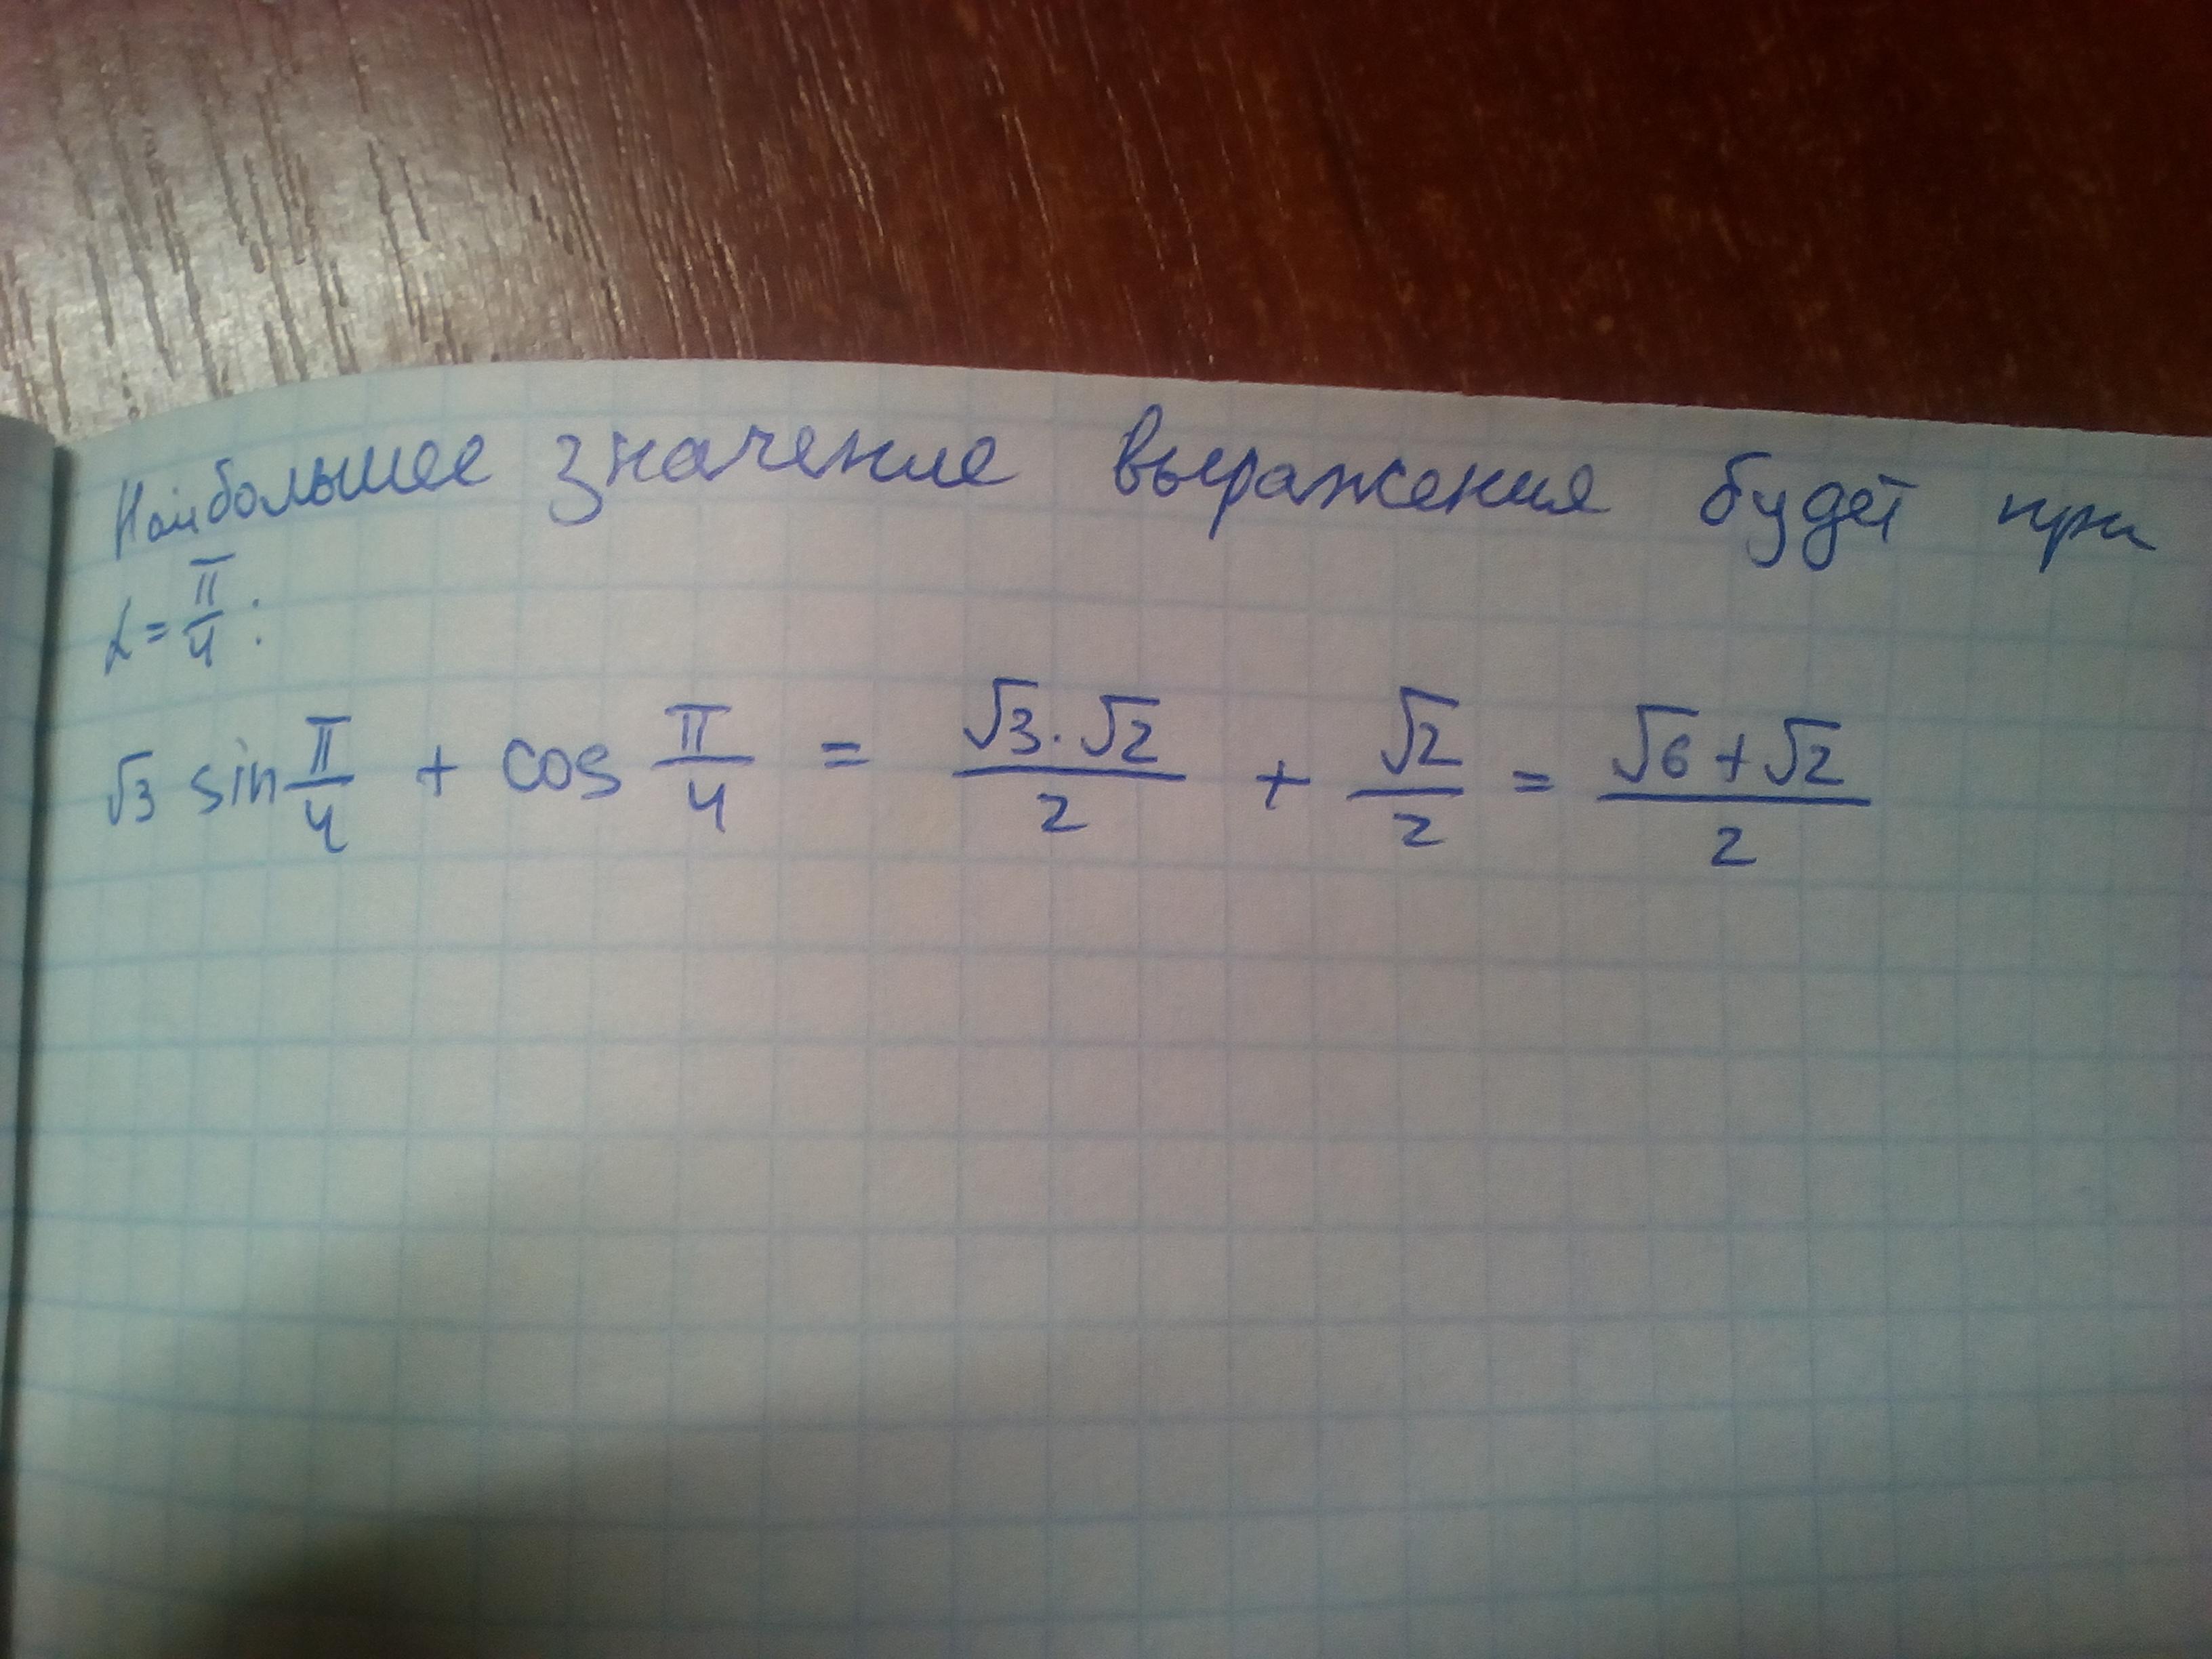 Наибольшее значение выражения будет при
α = π/4 :
√3 sin π/4 + cos π/4 = (√3 · √2)/2 + √2/2 = (√6 + √2)/2